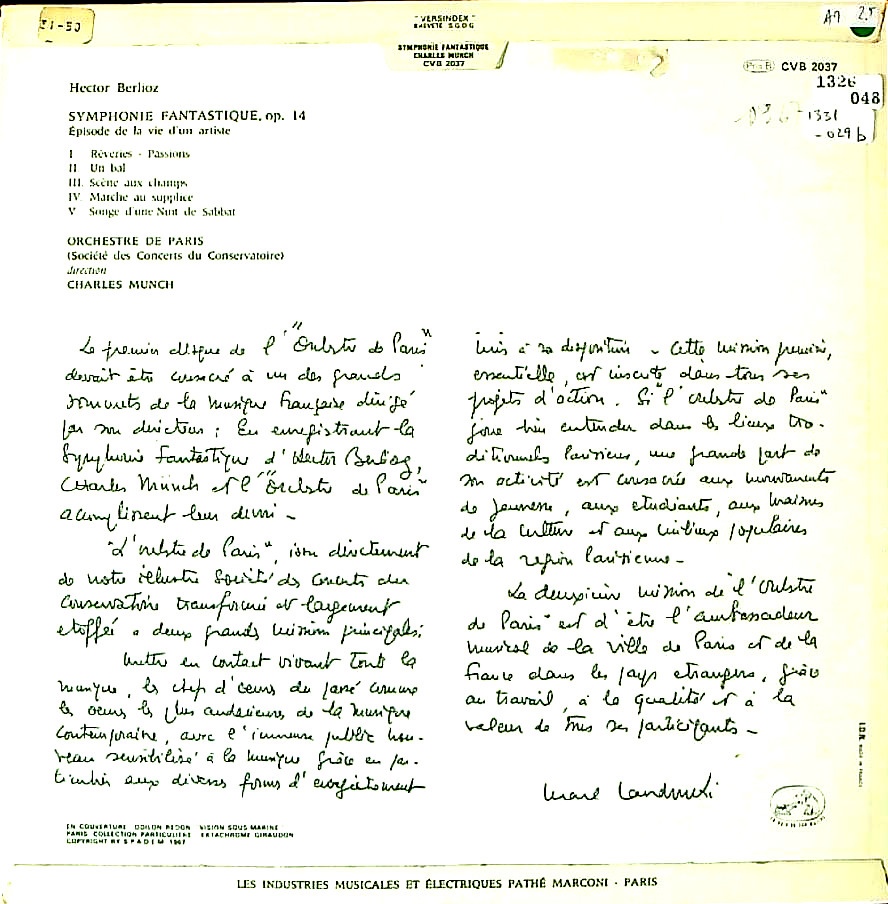 31-50
"VERSINDEX"
BREVETÉ S.G.D.G.
A7 25
SYMPHONIE FANTASTIQUE
CHARLES MUNCH
CVB 2037
CVB 2037
1326
048
1331
-029 b
Hector Berlioz
SYMPHONIE FANTASTIQUE, op. 14
Épisode de la vie d'un artiste
I Rêveries - Passions
II Un bal
III. Scène aux champs
IV. Marche au supplice
V Songe d'une Nuit de Sabbat
ORCHESTRE DE PARIS
(Société des Concerts du Conservatoire)
direction
CHARLES MUNCH
Le premier disque de l'"Orchestre de Paris"
devait être consacré à un des grands
sommets de la musique française dirigé
par son directeur : En enregistrant la
Symphonie Fantastique d'Hector Berlioz,
Charles Münch et l'"Orchestre de Paris"
accomplissent leur devoir -
"L'orchestre de Paris", issu directement
de notre illustre Société des Concerts du
Conservatoire transformé et largement
etoffée a deux grandes mission principales:
Mettre en contact vivant tout la
musique, les chefs d'oeuvre du passé comme
les oeuvres les plus audacieuses de la musique
contemporaine, avec l'immense public nou-
veau sensibilisé à la musique grâce en par-
ticulier aux diverses formes d'enregistrement
mis à sa disposition - Cette mission première,
essentielle, est inscrite dans tous ses
projets d'action. Si "l'orchestre de Paris"
joue bien entendu dans les lieux tra-
ditionnels Parisiens, une grande part de
son activité est consacrée aux mouvements
de Jeunesse, aux etudiants, aux maisons
de la culture et aux milieux populaires
de la region Parisienne -
La deuxième mission de "l'Orchestre
de Paris" est d'être l'ambassadeur
musical de la ville de Paris et de la
France dans les pays etrangers, grâce
au travail, à la qualité et à la
valeur de tous ses participants -
Marcel Landowski
EN COUVERTURE ODILON REDON VISION SOUS MARINE
PARIS COLLECTION PARTICULIÈRE EKTACHROME GIRAUDON
COPYRIGHT BY SPADEM 1967
IDR MADE IN FRANCE
LES INDUSTRIES MUSICALES ET ÉLECTRIQUES PATHÉ MARCONI - PARIS